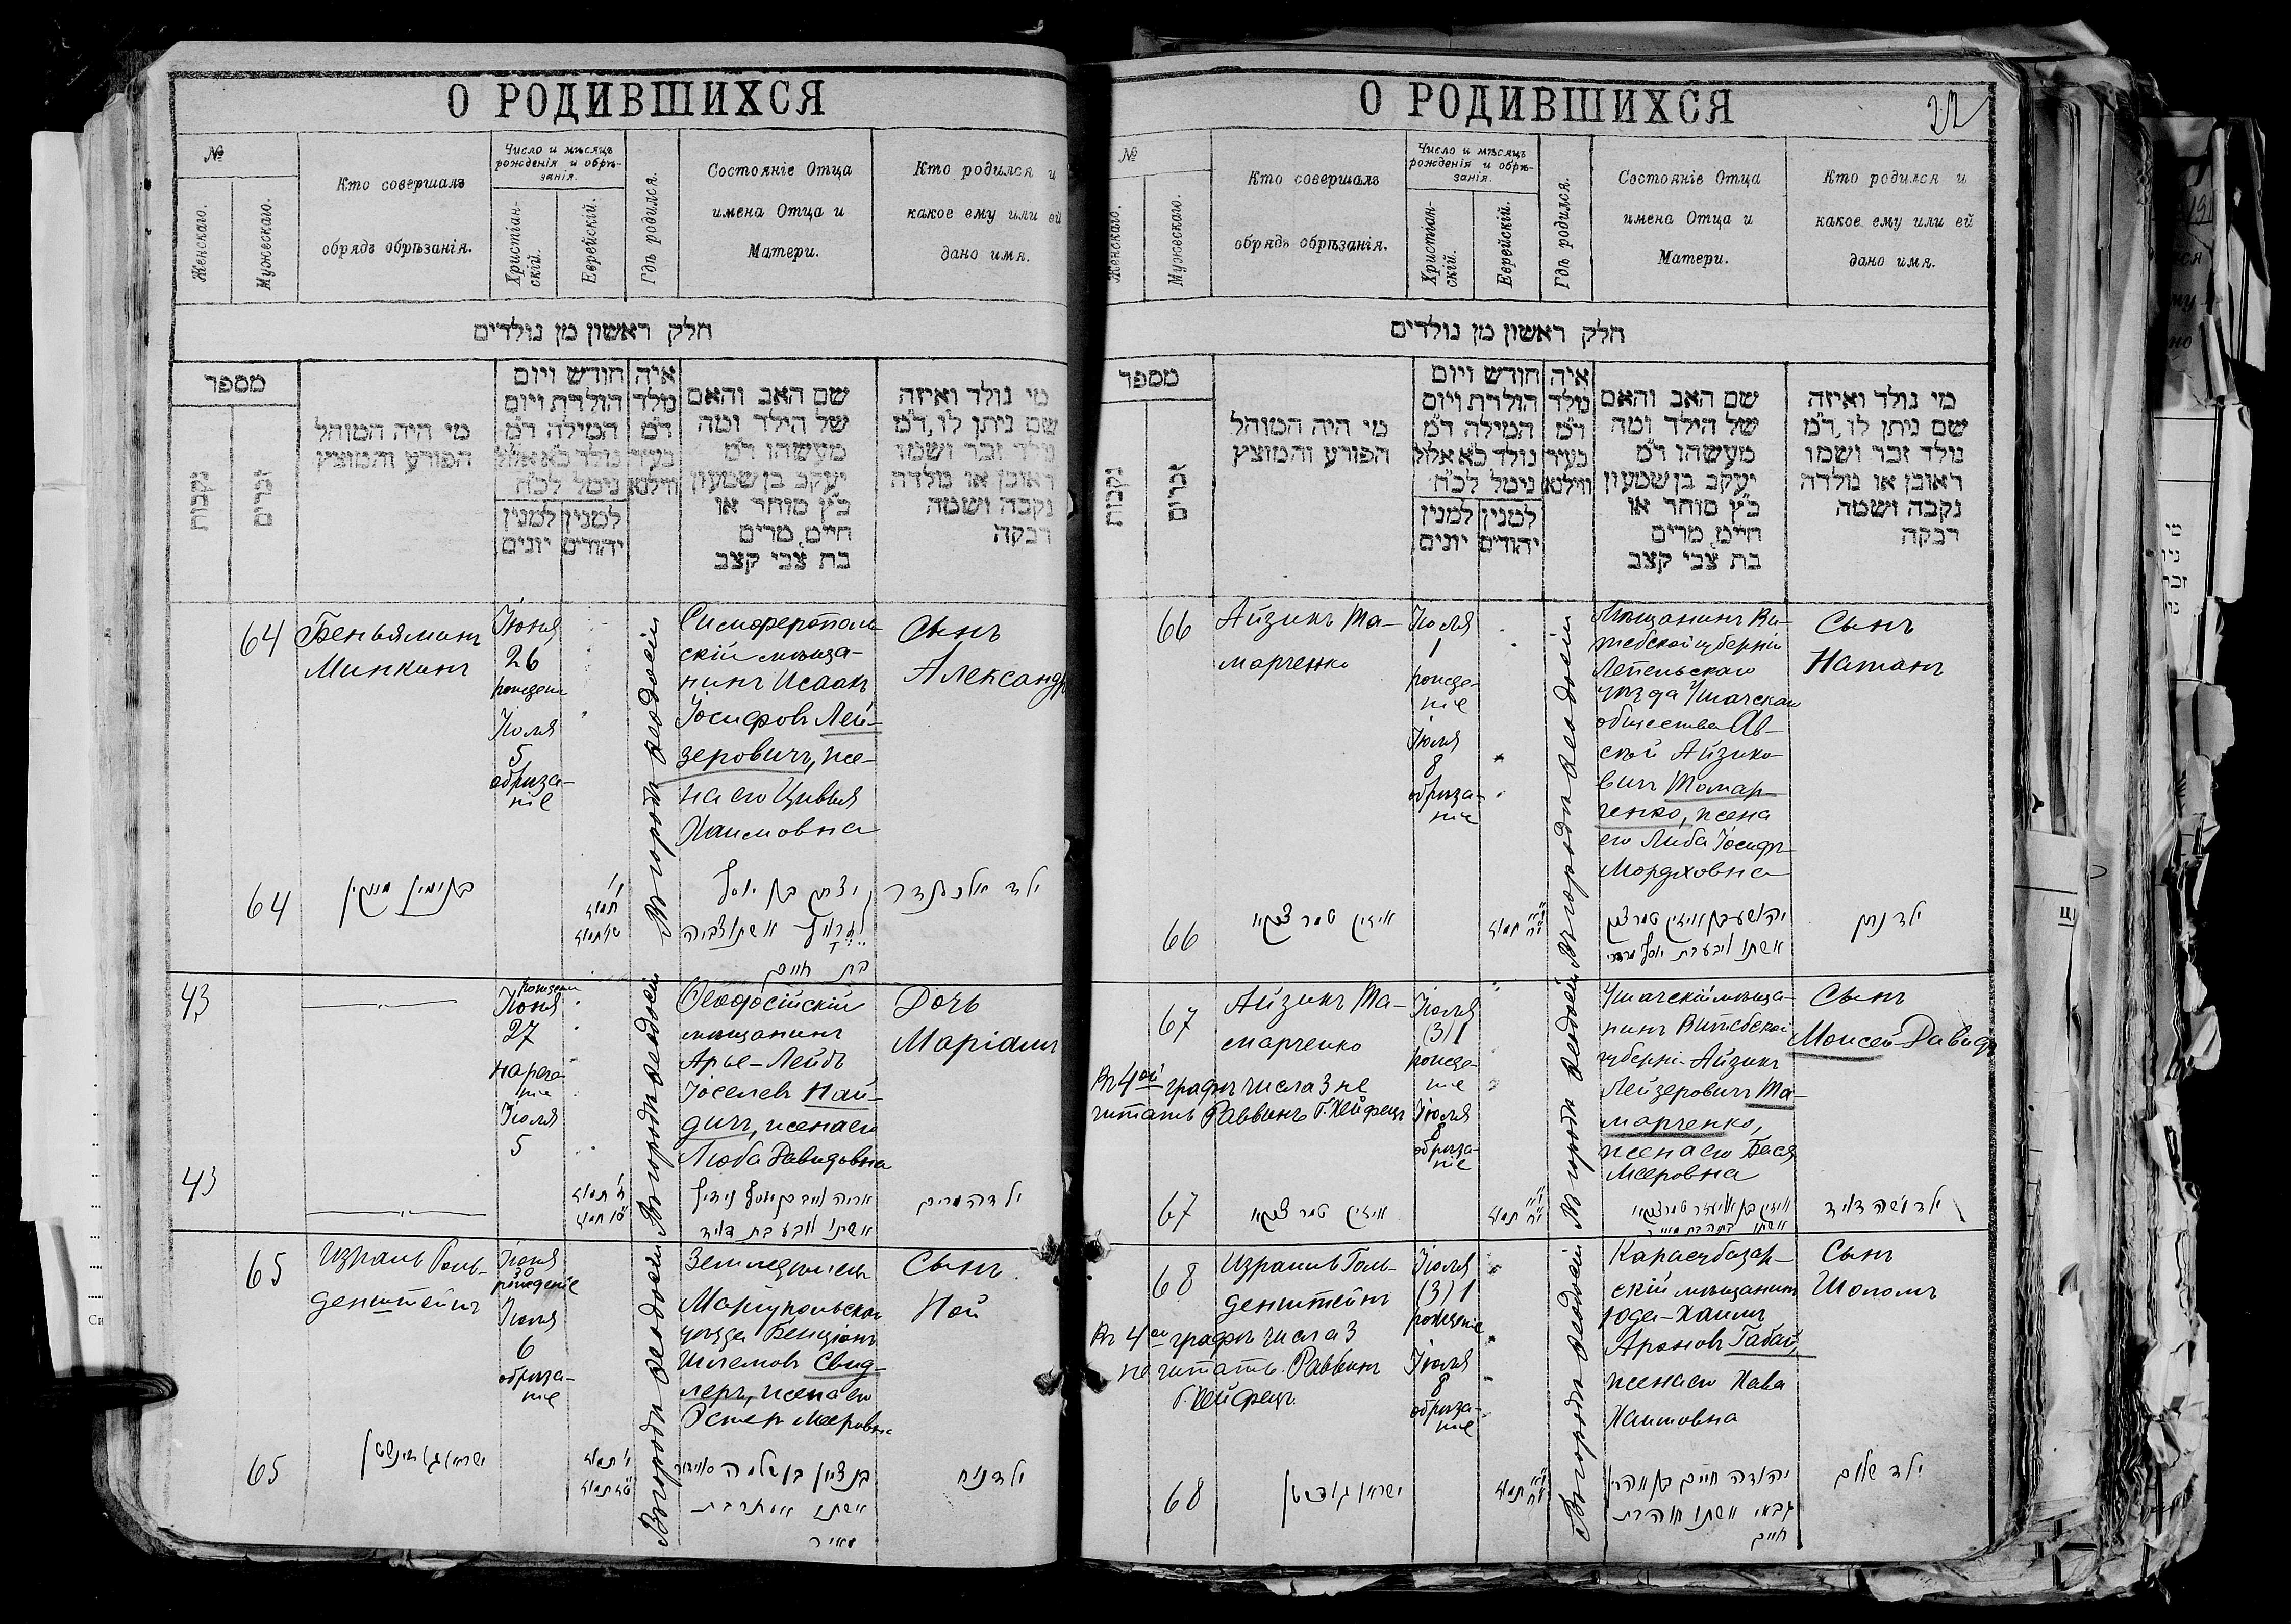 О РОДИВШИХСЯ
№
Женскаго.
Мужескаго.
Кто совершалъ
обрядъ обрѣзанія.
Число и мѣсяцъ
рожденія и обрѣ-
занія.
Христіан-
скій.
Еврейскій.
Гдѣ родился.
Состояніе Отца
имена Отца и
Матери.
Кто родился и
какое ему или ей
дано имя.
חלק ראשון מן נולדים
מספר
נקבות
זכרים
מי היה המוהל
הפורע והמוצץ
חודש ויום
הולדת ויום
המילה ד״מ
נולד כ״א אלול
נימל לכ״ח
למנין
יונים
למנין
יהודים
איה
מלד
ד״מ
בעיר
ווילנא
שם האב והאם
של הילד ומה
מעשהו ד״מ
יעקב בן שמעון
כ״ץ סוחר או
חיים, מרים
בת צבי קצב
מי נולד ואיזה
שם ניתן לו, ד״מ
נולד זכר ושמו
ראובן או נולדה
נקבה ושמה
רבקה
64
Беньяминъ
Минкинъ
Іюня
26
рожденіе
Іюля
5
обрѣза-
ніе
Въ городѣ Ѳеодосіи
Симферополь-
скій мѣща-
нинъ Исаакъ
Іосифовъ Лей-
зеровичъ, же-
на его Цивья
Хаимовна
Сынъ
Александръ
64
בנימין מינקין
תמוז
יצחק בן יוסף
אשתו צביה
בת חיים
ילד אלכסנדר
43
рожденіе
Іюня
27
нарече-
ніе
Іюля
5
Въ городѣ Ѳеодосіи
Ѳеодосійскій
мѣщанинъ
Арье-Лейбъ
Іоселевъ Най-
дичъ, жена его
Люба Давидовна
Дочь
Маріамъ
43
ח׳ תמוז
תמוז
אריה ליב בן יוסף נידיץ
אשתו ליבע בת דוד
ילדה מרים
65
Израиль Голь-
денштейнъ
Іюня
30
рожденіе
Іюля
6
обрѣза-
ніе
Въ городѣ Ѳеодосіи
Земледѣлецъ
Маріупольскаго
уѣзда Бенціонъ
Шлемовъ Свид-
леръ, жена его
Эстеръ Мееровна
Сынъ
Ной
65
תמוז
בן ציון בן שלמה
אשתו אסתר בת
מאיר
ילד נח
О РОДИВШИХСЯ
22
№
Женскаго.
Мужескаго.
Кто совершалъ
обрядъ обрѣзанія.
Число и мѣсяцъ
рожденія и обрѣ-
занія.
Христіан-
скій.
Еврейскій.
Гдѣ родился.
Состояніе Отца
имена Отца и
Матери.
Кто родился и
какое ему или ей
дано имя.
חלק ראשון מן נולדים
מספר
נקבות
זכרים
מי היה המוהל
הפורע והמוצץ
חודש ויום
הולדת ויום
המילה ד״מ
נולד כ״א אלול
נימל לכ״ח
למנין
יונים
למנין
יהודים
איה
מלד
ד״מ
בעיר
ווילנא
שם האב והאם
של הילד ומה
מעשהו ד״מ
יעקב בן שמעון
כ״ץ סוחר או
חיים, מרים
בת צבי קצב
מי נולד ואיזה
שם ניתן לו, ד״מ
נולד זכר ושמו
ראובן או נולדה
נקבה ושמה
רבקה
66
Айзикъ Та-
марченко
Іюля
1
рожде-
ніе
Іюля
8
обрѣза-
ніе
Въ городѣ Ѳеодосіи
Мѣщанинъ Ви-
тебской губерніи
Лепельскаго
уѣзда Ушачскаго
общества Ав-
сѣй Айзико-
вичъ Томар-
ченко, жена
его Либа Іосифъ-
Мордховна
Сынъ
Натанъ
66
תמוז
אשתו ליבע בת יוסף
ילד נתן
67
Айзикъ Та-
марченко
Іюля
(3) 1
рожде-
ніе
Іюля
8
обрѣза-
ніе
Въ 4ой графѣ числа 3 не
читать Раввинъ Г. Хейфецъ
Въ городѣ Ѳеодосіи
Ушачскій мѣща-
нинъ Витебской
губерніи Айзикъ
Лейзеровичъ Та-
марченко,
жена его Бася
Мееровна
Сынъ
Моисей-Давидъ
67
תמוז
ילד משה דוד
68
Израиль Голь-
денштейнъ
Іюля
(3) 1
рожденіе
Іюля
8
обрѣза-
ніе
Въ 4ой графѣ числа 3
не читать. Раввинъ
Г. Хейфецъ.
Въ городѣ Ѳеодосіи
Карасубазар-
скій мѣщанинъ
Юда-Хаимъ
Ароновъ Габай,
жена его Хава
Хаимовна
Сынъ
Шоломъ
68
תמוז
יהודה חיים בן אהרן
גבאי אשתו חוה בת
חיים
ילד שלום